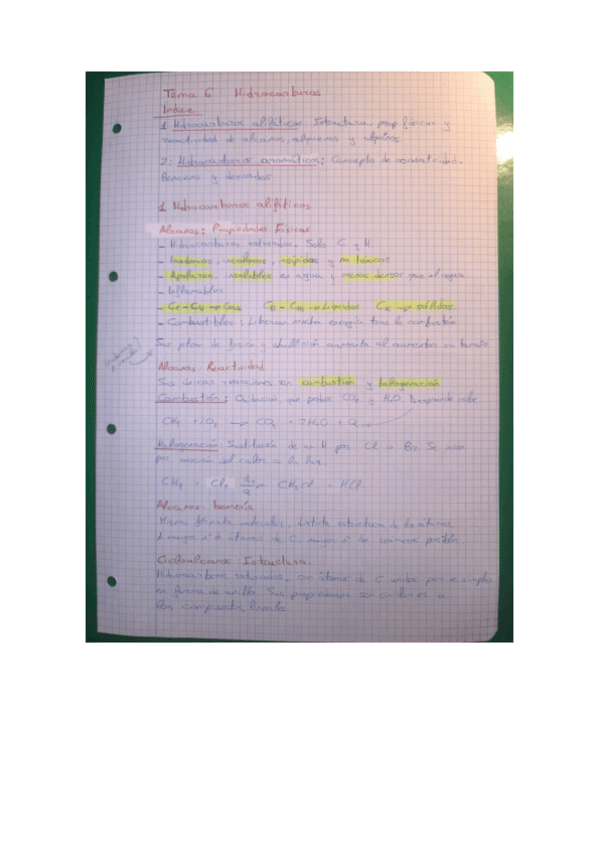 Tema 6 Hidrocarburos
Índice
1 Hidrocarburos alifáticos. Estructura, prop. físicas y
reactividad de alcanos, alquenos y alquinos.
2: Hidrocarburos aromáticos: Concepto de aromaticidad.
Benceno y derivados
1 Hidrocarburos alifáticos
Alcanos: Propiedades Físicas
- Hidrocarburos saturados. Solo C y H
- Inodoros, incoloros, insípidos y no tóxicos
- Apolares, insolubles en agua y menos densos que el agua
- Inflamables
- C1-C4 → Gas C5-C15 → Líquidos → sólidos
- Combustibles: Liberan mucha energía tras la combustión
Sus ptos de fusión y ebullición aumenta al aumentar su tamaño
Alcanos: Reactividad
Sus únicas reacciones son combustión y halogenación
Combustión: Oxidación, que produce CO2 y H2O. Desprende calor
CH4 + 2O2 → CO2 + 2H2O + Q
Halogenación: Sustitución de un H por Cl o Br. Se inician
por acción del calor o la luz.
CH4 + Cl2 → CH3Cl + HCl
Alcanos: Isomería
Misma fórmula molecular, distinta estructura de los átomos.
A mayor nº de átomos de C, mayor nº de isómeros posibles.
Cicloalcanos: Estructura.
Hidrocarburos saturados, con átomos de C unidos por e simple
en forma de anillo. Sus propiedades son similares a
los compuestos lineales